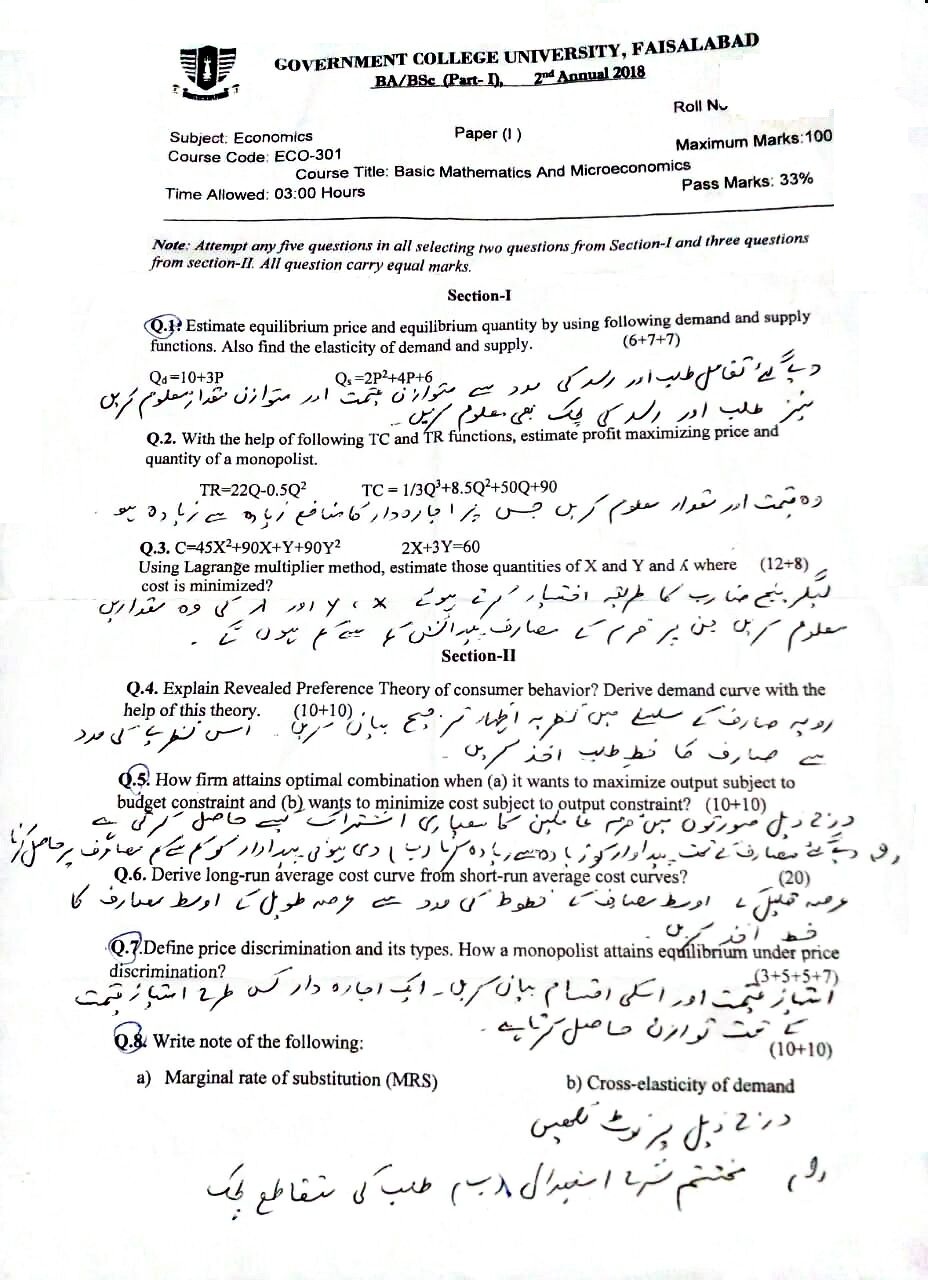 GOVERNMENT COLLEGE UNIVERSITY, FAISALABAD
BA/BSc (Part- I), 2nd Annual 2018
Roll No
Subject: Economics Paper (I ) Maximum Marks:100
Course Code: ECO-301
Course Title: Basic Mathematics And Microeconomics
Time Allowed: 03:00 Hours Pass Marks: 33%
Note: Attempt any five questions in all selecting two questions from Section-I and three questions
from section-II. All question carry equal marks.
Section-I
Q.1: Estimate equilibrium price and equilibrium quantity by using following demand and supply
functions. Also find the elasticity of demand and supply. (6+7+7)
Qd=10+3P Qs=2P²+4P+6
دیے گئے تفاعل طلب اور رسد کی مدد سے متوازن قیمت اور متوازن مقدار معلوم کریں
نیز طلب اور رسد کی لچک بھی معلوم کریں۔
Q.2. With the help of following TC and TR functions, estimate profit maximizing price and
quantity of a monopolist.
TR=22Q-0.5Q² TC = 1/3Q³+8.5Q²+50Q+90
وہ قیمت اور مقدار معلوم کریں جس پر اجارہ دار کا منافع زیادہ سے زیادہ ہو۔
Q.3. C=45X²+90X+Y+90Y² 2X+3Y=60
Using Lagrange multiplier method, estimate those quantities of X and Y and ʎ where (12+8)
cost is minimized?
لیگرینج ضارب کا طریقہ اختیار کرتے ہوئے X ، Y اور λ کی وہ مقداریں
معلوم کریں جن پر فرم کے مصارف پیدائش کم سے کم ہوں گے۔
Section-II
Q.4. Explain Revealed Preference Theory of consumer behavior? Derive demand curve with the
help of this theory. (10+10)
رویہ صارف کے سلسلے میں نظریہ اظہار ترجیح بیان کریں۔ اس نظریے کی مدد
سے صارف کا خط طلب اخذ کریں۔
Q.5. How firm attains optimal combination when (a) it wants to maximize output subject to
budget constraint and (b) wants to minimize cost subject to output constraint? (10+10)
درج ذیل صورتوں میں فرم عاملین کا معیاری اشتراک کیسے حاصل کرتی ہے
دیے گئے مصارف کے تحت پیداوار کو زیادہ سے زیادہ کرنا (ب) دی ہوئی پیداوار کو کم سے کم مصارف پر حاصل کرنا
Q.6. Derive long-run average cost curve from short-run average cost curves? (20)
عرصہ قلیل کے اوسط مصارف کے خطوط کی مدد سے عرصہ طویل کے اوسط مصارف کا
خط اخذ کریں۔
Q.7.Define price discrimination and its types. How a monopolist attains equilibrium under price
discrimination? (3+5+5+7)
امتیاز قیمت اور اسکی اقسام بیان کریں۔ ایک اجارہ دار کس طرح امتیاز قیمت
کے تحت توازن حاصل کرتا ہے۔
Q.8. Write note of the following: (10+10)
a) Marginal rate of substitution (MRS) b) Cross-elasticity of demand
درج ذیل پر نوٹ لکھیں
مختتم شرح استبدال (ب) طلب کی متقاطع لچک